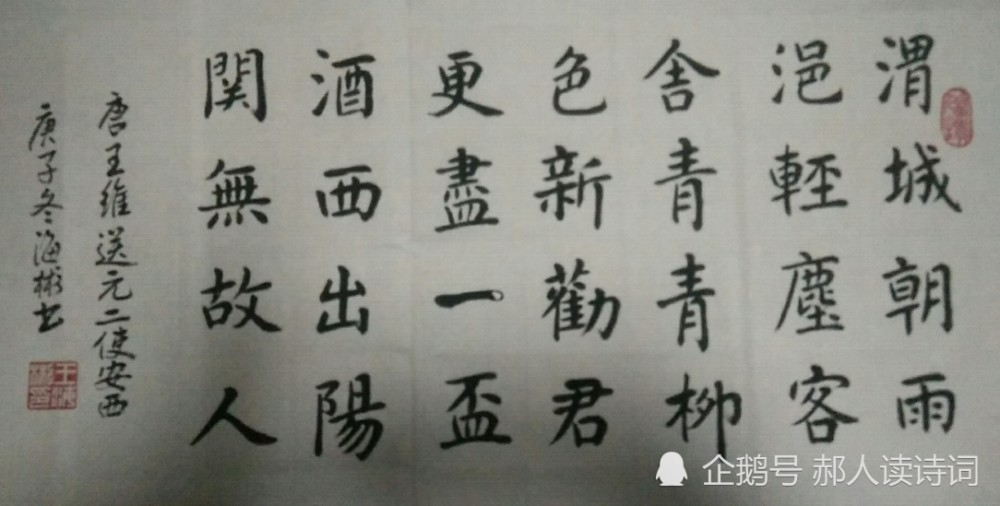 渭城朝雨
浥輕塵客
舎青青柳
色新勸君
更盡一盃
酒西出陽
関無故人
唐王維送元二使安西
庚子冬海彬书
企鹅号 郝人读诗词